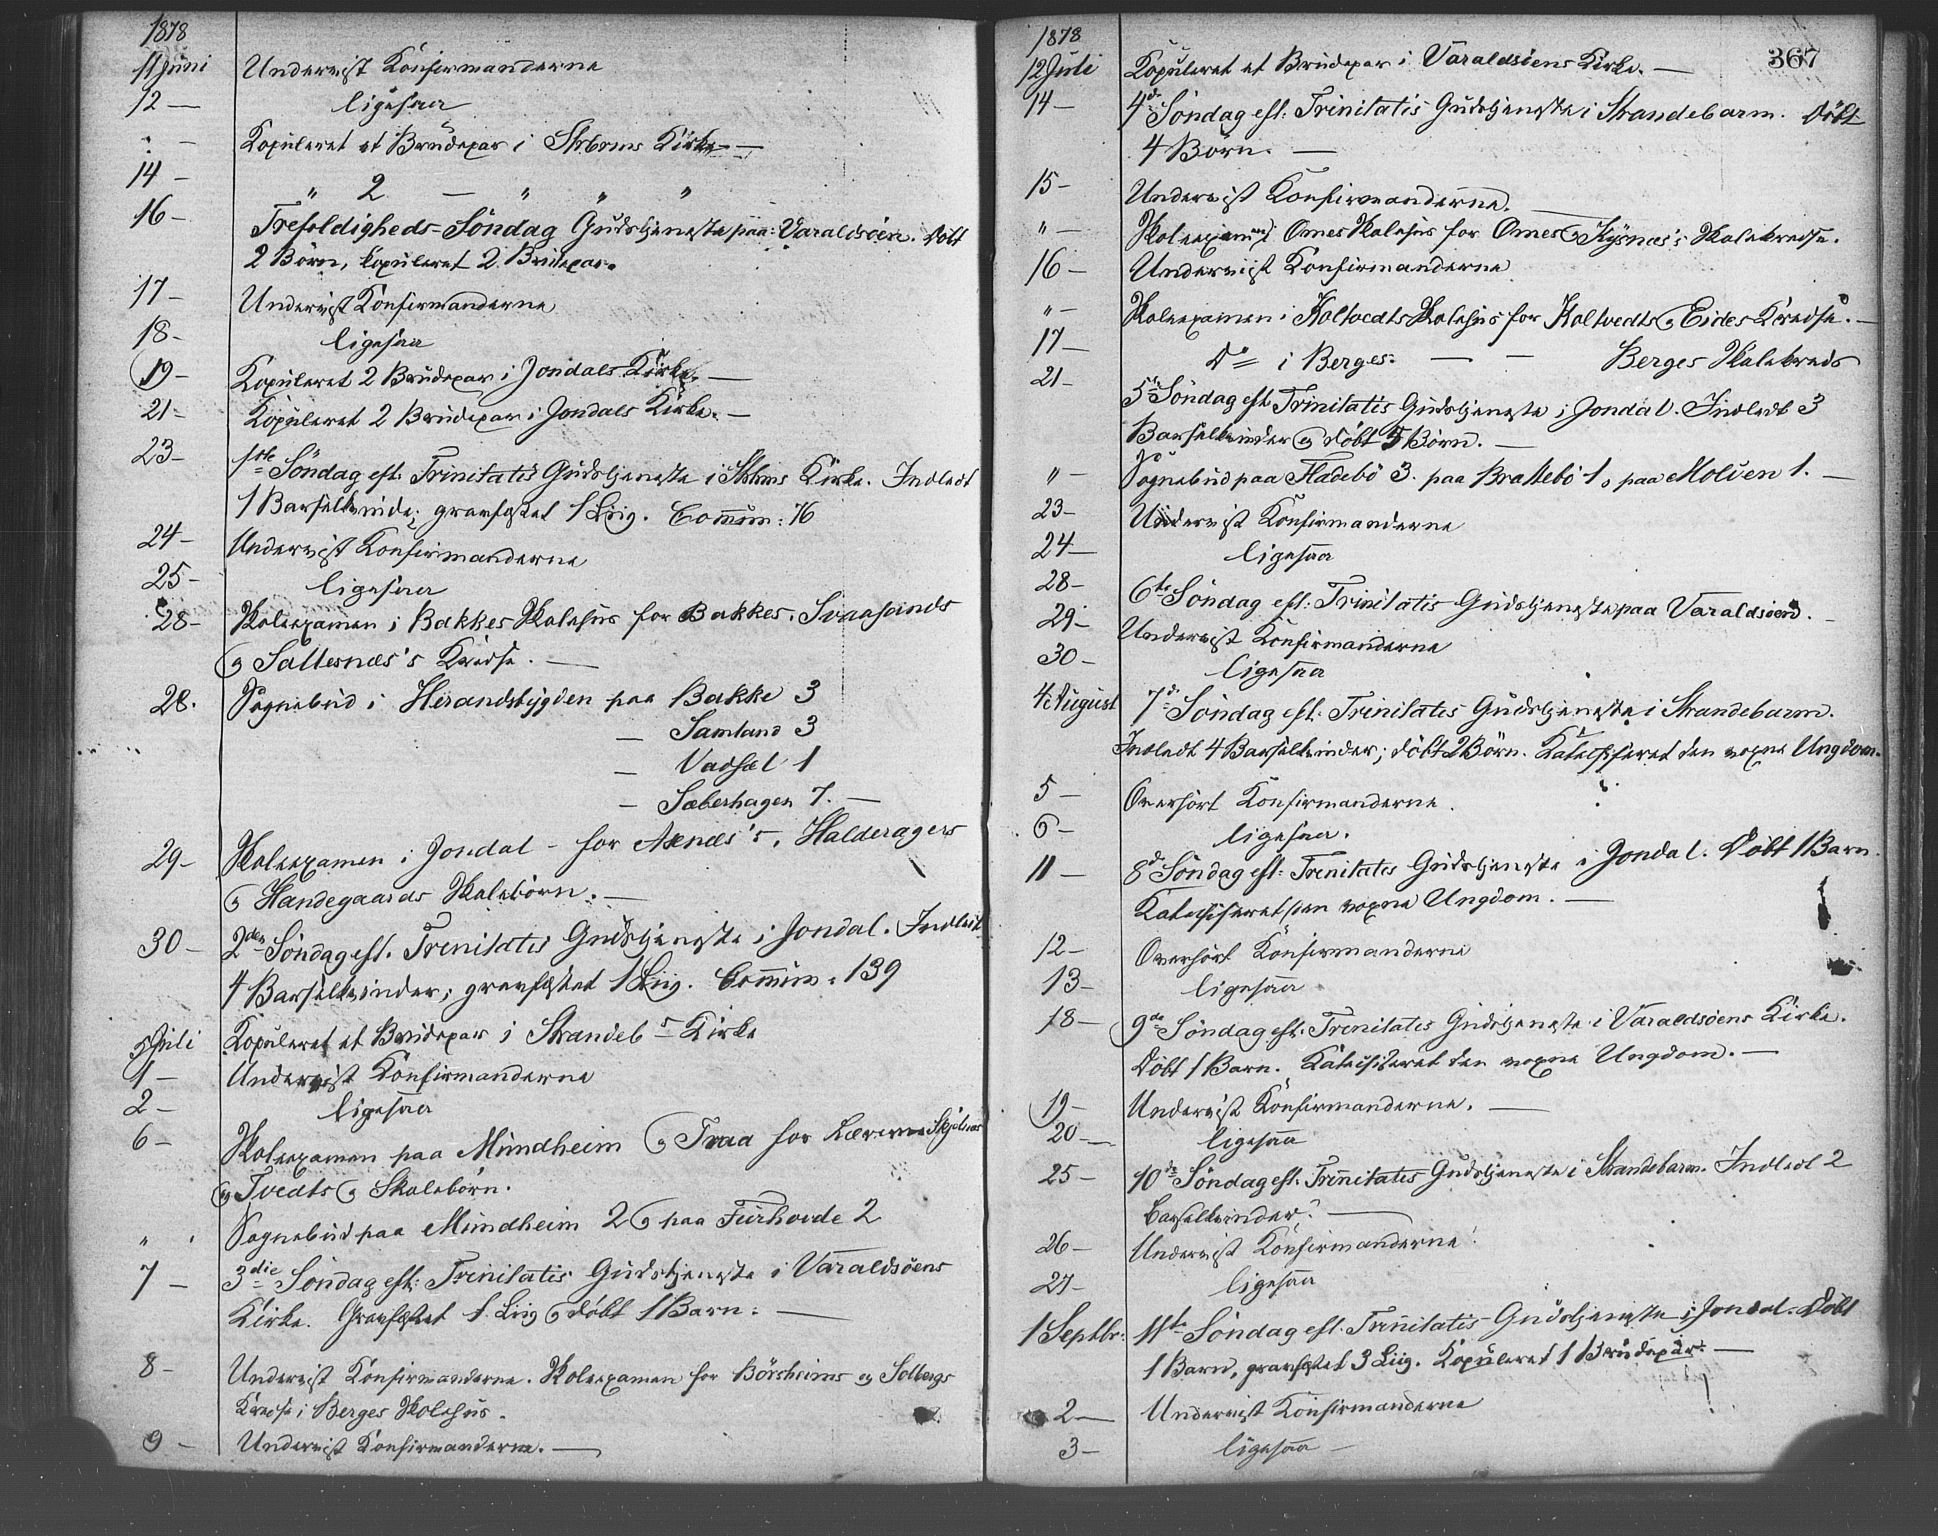 1878
11 Juni Undervist Konfirmanderne
12 — ligesaa
" — Kopuleret et Brudepar i Strbrms Kirke —
14 — " 2 — " " "
16 — Trefoldigheds-Söndag Gudstjeneste paa Varaldsöen. Döbt
2 Börn, kopuleret 2 Brudepar.
17 — Undervist Konfirmanderne
18 - ligesaa
19 — Kopuleret 2 Brudepar i Jondals Kirke. —
21 - Kopuleret 2 Brudepar i Jondals Kirke. —
23 — 1ste Söndag eft. Trinitatis Gudstjeneste i Strbrms Kirke. Indledt
1 Barselkvinde; gravfæstet 1 Liig. Commun: 76
24 — Undervist Konfirmanderne
25 — ligesaa
28 — Skoleexamen i Bakkes Skolehus for Bakkes, Svaasands
og Saltesnæs's Kredse. —
28. Sognebud i Herandsbygden paa Bakke 3
— Samland 3
— Vadsel 1
— Sæberhagen 7. —
29 — Skoleexamen i Jondal - for Axnæs's, Halderagers
og Handegaards Skolebörn. —
30 — 2den Söndag eft. Trinitatis Gudstjeneste i Jondal. Indledt
4 Barselkvinder; gravfæstet 1 Liig. Commun: 139
5 Juli Kopuleret et Brudepar i Strandebs Kirke
1 — Undervist Konfirmanderne
2 — ligesaa
6 — Skoleexamen paa Mundheim og Traa for Lærerne Skjelnæs
og Tvedts Skolebörn.
" Sognebud paa Mundheim 2 og paa Furhovde 2
7 — 3die Söndag eft: Trinitatis Gudstjeneste i Varaldsöens
Kirke. Gravfæstet 1 Liig og döbt 1 Barn. —
8 — Undervist Konfirmanderne. Skoleexamen for Börsheims og Solbergs
Kredse i Berges Skolehus.
9 — Undervist Konfirmanderne. —
367
1878
12 Juli Kopuleret et Brudepar i Varaldsöens Kirke. —
14 — 4de Söndag eft: Trinitatis Gudstjeneste i Strandebarm. Döbt
4 Börn. —
15 — Undervist Konfirmanderne.
" — Skoleexamen i Omes Skolehus for Omes og Kysnæs's Skolekredse.
16 — Undervist Konfirmanderne
" — Skoleexamen i Holtvedts Skolehus for Holtvedts og Eides Kredse. —
17 — Do i Berges — — Berges Skolekreds
21 — 5te Söndag eft Trinitatis Gudstjeneste i Jondal. Indledt 3
Barselkvinder og döbt 5 Börn. —
" — Sognebud paa Fladebö 3. paa Brattebö 1, paa Molven 1. —
23 — Undervist Konfirmanderne
24 — ligesaa
28 — 6te Söndag eft: Trinitatis Gudstjeneste paa Varaldsöen.
29 — Undervist Konfirmanderne
30 — ligesaa
4 August 7de Söndag eft. Trinitatis Gudstjeneste i Strandebarm.
Indledt 4 Barselkvinder; döbt 2 Börn. Katechiseret den voxne Ungdom.
5 — Overhört Konfirmanderne.
6 — ligesaa.
11 — 8de Söndag eft: Trinitatis Gudstjeneste i Jondal. Döbt 1 Barn.
Katechiseret den voxne Ungdom. —
12 — Overhört Konfirmanderne
13 — ligesaa
18 — 9de Söndag eft. Trinitatis Gudstjeneste i Varaldsöens Kirke.
Döbt 1 Barn. Katechiseret den voxne Ungdom. —
19 — Undervist Konfirmanderne. —
20 — ligesaa
25 — 10de Söndag eft. Trinitatis Gudstjeneste i Strandebarm. Indledt 2
barselkvinder. —
26 — Undervist Konfirmanderne
27 — ligesaa
1 Septbr. 11te Söndag eft. Trinitatis Gudstjeneste i Jondal. Döbt
1 Barn, gravfæstet 3 Liig. Kopuleret 1 Brudepar. —
2 — Undervist Konfirmanderne
3 — ligesaa —